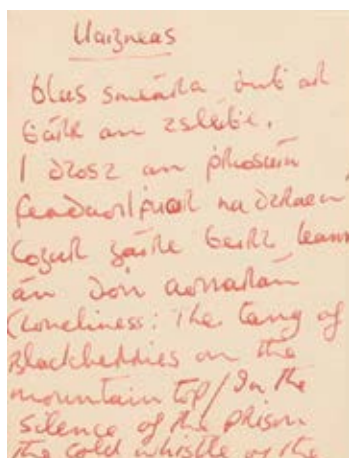 Uaigneas
blas sméara duḃ ar
bárr an tsléiḃe.
I dtost an phriosúin
feadaoil fuar na dtraen
Cogur gáire beirt leann
án don aonarán
(Loneliness: The tang of
Blackberries on the
mountain top/In the
silence of the prison
the cold whistle of the